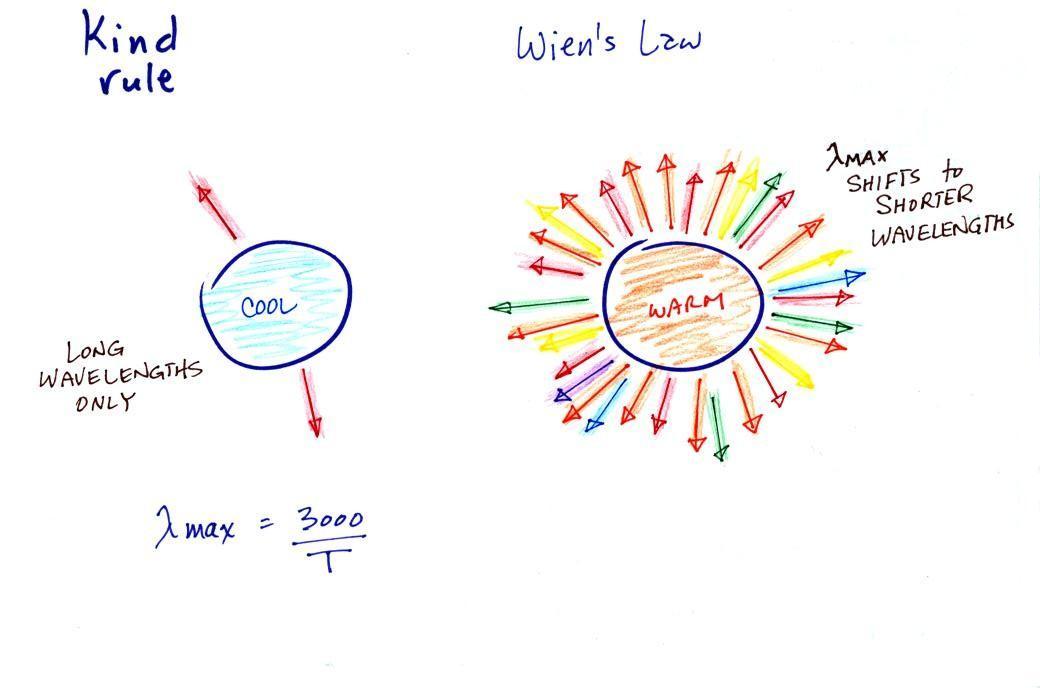 Kind
rule
Wien's Law
COOL
LONG
WAVELENGTHS
ONLY
WARM
λMAX
SHIFTS to
SHORTER
WAVELENGTHS
λmax = 3000
T